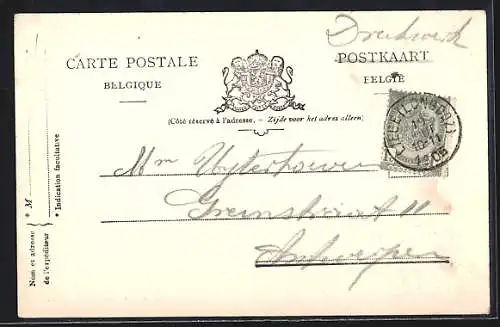 Drukwerk
CARTE POSTALE
POSTKAART
BELGIQUE
BELGIË
(Côté réservé à l'adresse. — Zijde voor het adres alleen)
Mr Uytterhoeven
11
Antwerpen
* M
* Indication facultative
Nom et adresse
de l'expéditeur